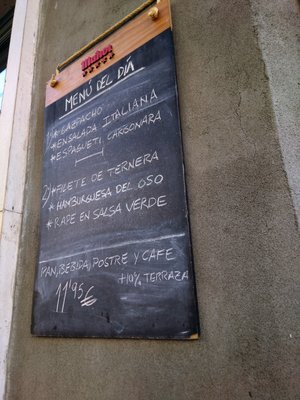 Mahou
MENÚ DEL DÍA
1) * GAZPACHO
* ENSALADA ITALIANA
* ESPAGUETI CARBONARA
2) * FILETE DE TERNERA
* HAMBURGUESA DEL OSO
* RAPE EN SALSA VERDE
PAN, BEBIDA, POSTRE Y CAFE
11'95€ +10% TERRAZA